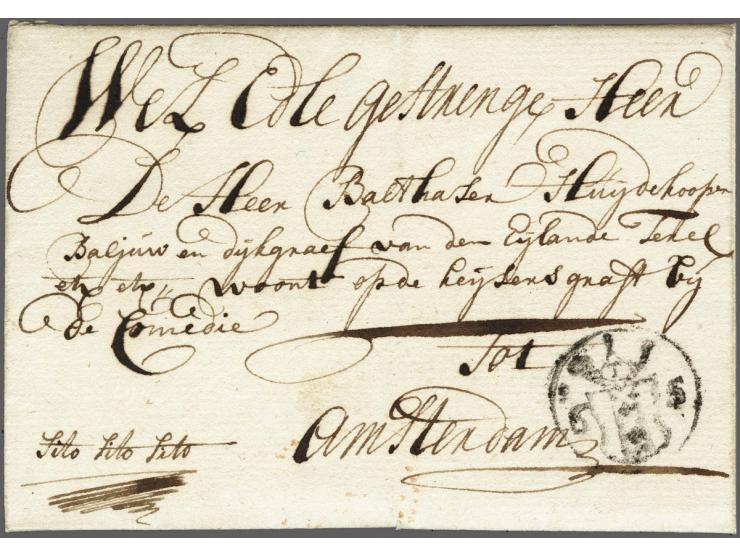 Wel Edle gestrenge Heer
De Heer Balthaser Huijdekooper
Baljuw en dijkgraef van den Eylande Texel
etz etz woont op de keijsersgraft bij
de Comedie
Tot
Amsterdam
Sito Sito Sito